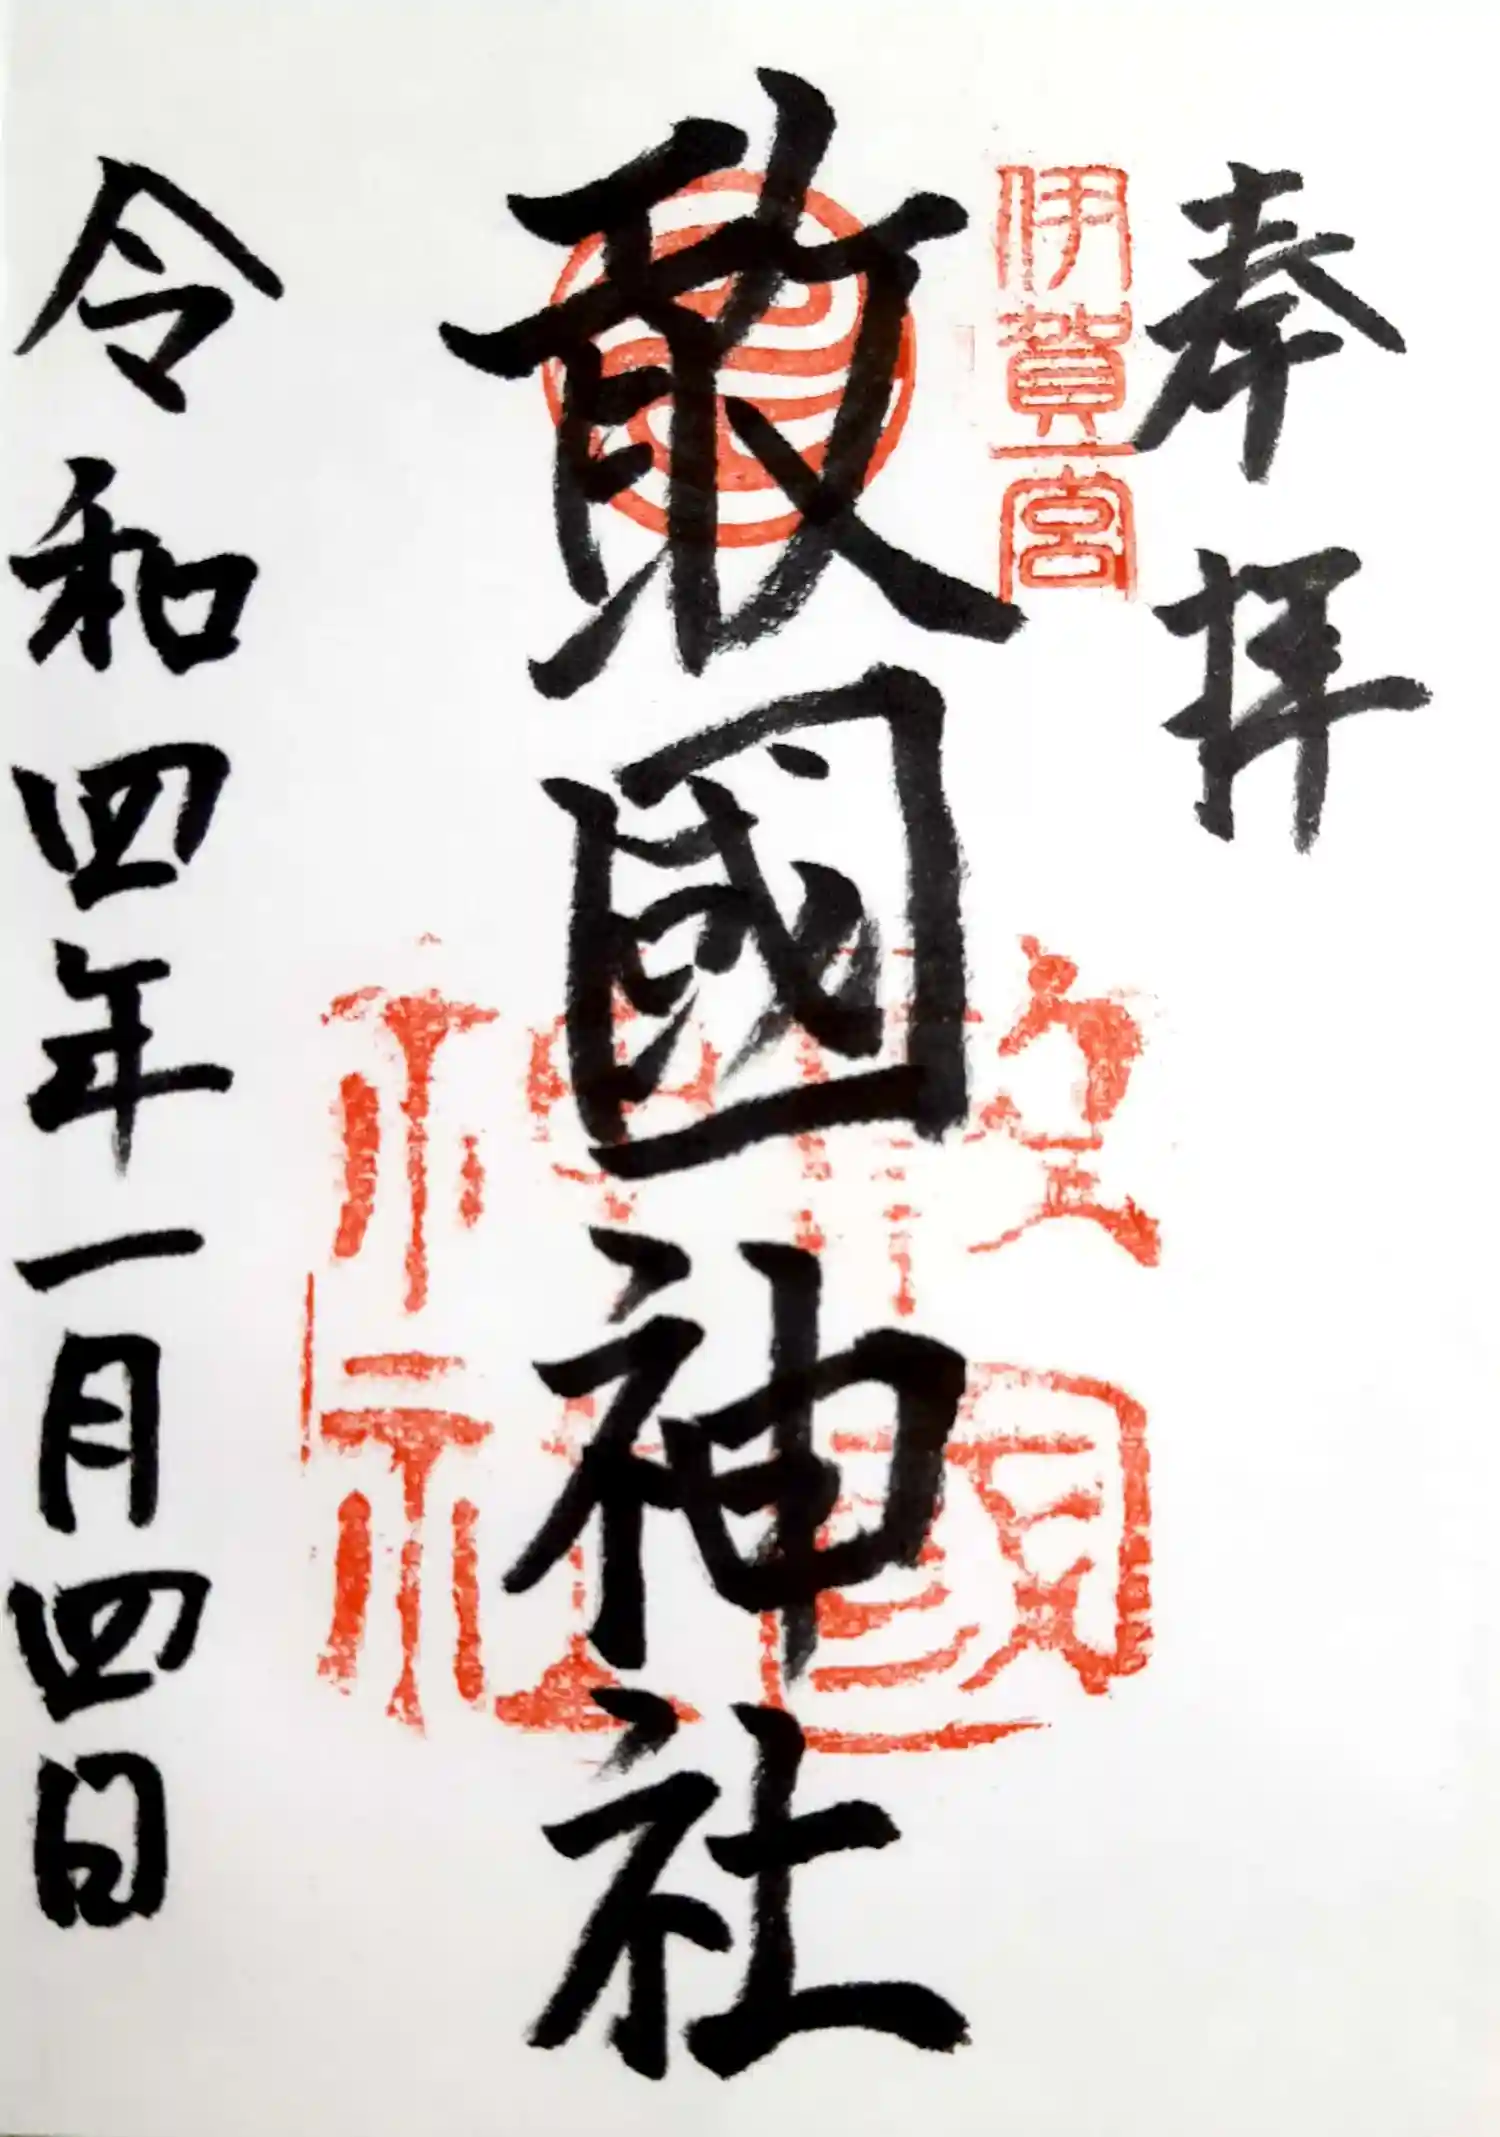 奉拝
伊賀一宮
敢國神社
敢國神社
令和四年一月四日